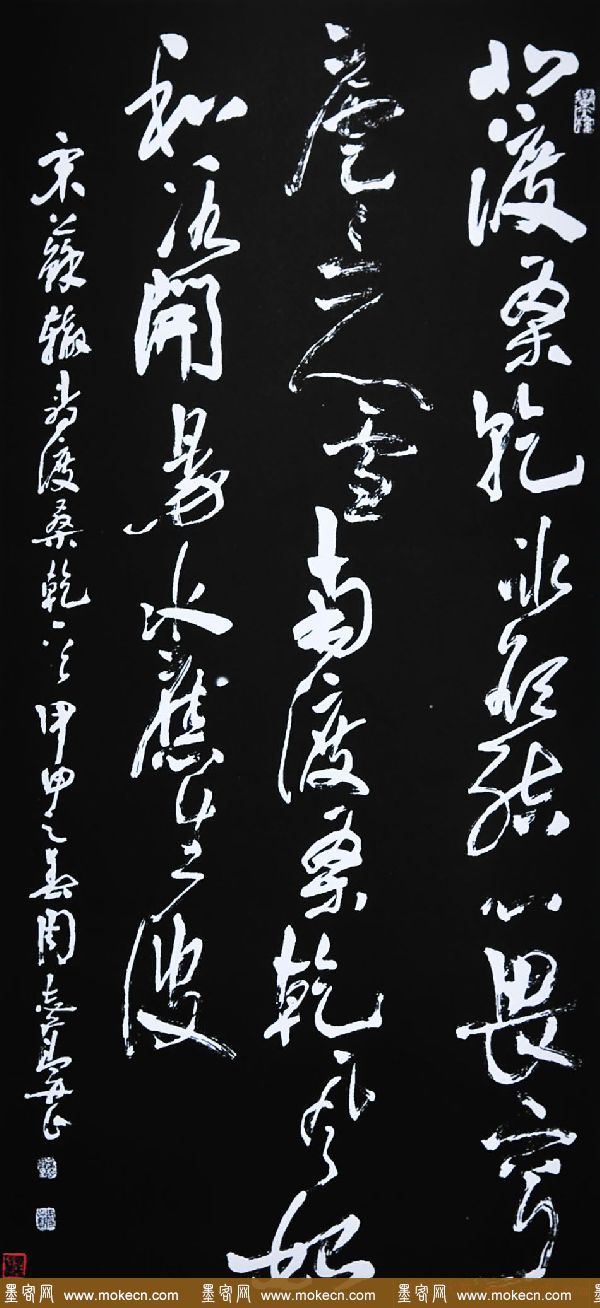 北渡桑乾冰欲結心畏穹
廬三尺雪南渡桑乾風始
和冰開易水應生波
宋蘇轍詩渡桑乾 甲申之春周
墨客网 www.mokecn.com 墨客网 www.mokecn.com 墨客网 www.mokecn.com